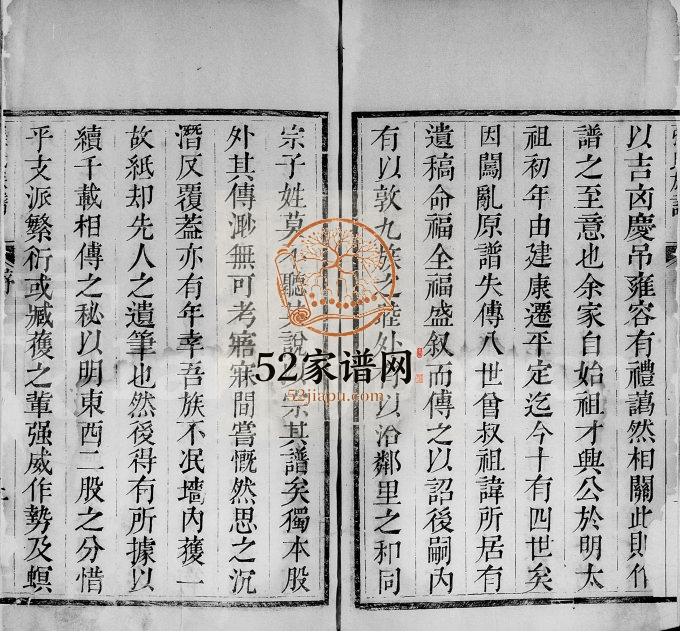 以吉凶慶吊雍容有禮藹然相關此則作
譜之至意也余家自始祖才興公於明太
祖初年由建康遷平定迄今十有四世矣
因闖亂原譜失傳八世曾叔祖諱所居有
遺稿命福全福盛叙而傳之以詔後嗣內
有以敦九族之睦外以洽鄰里之和同
宗子姓莫聽其說宗其譜矣獨本股
外其傳渺無可考寤寐間嘗慨然思之沉
潛反覆葢亦有年幸吾族不泯墙內獲一
故紙却先人之遺筆也然後得有所據以
續千載相傳之秘以明東西二股之分惜
乎支派繁衍或臧獲之輩强威作勢及螟
序
52家谱网
52jiapu.com